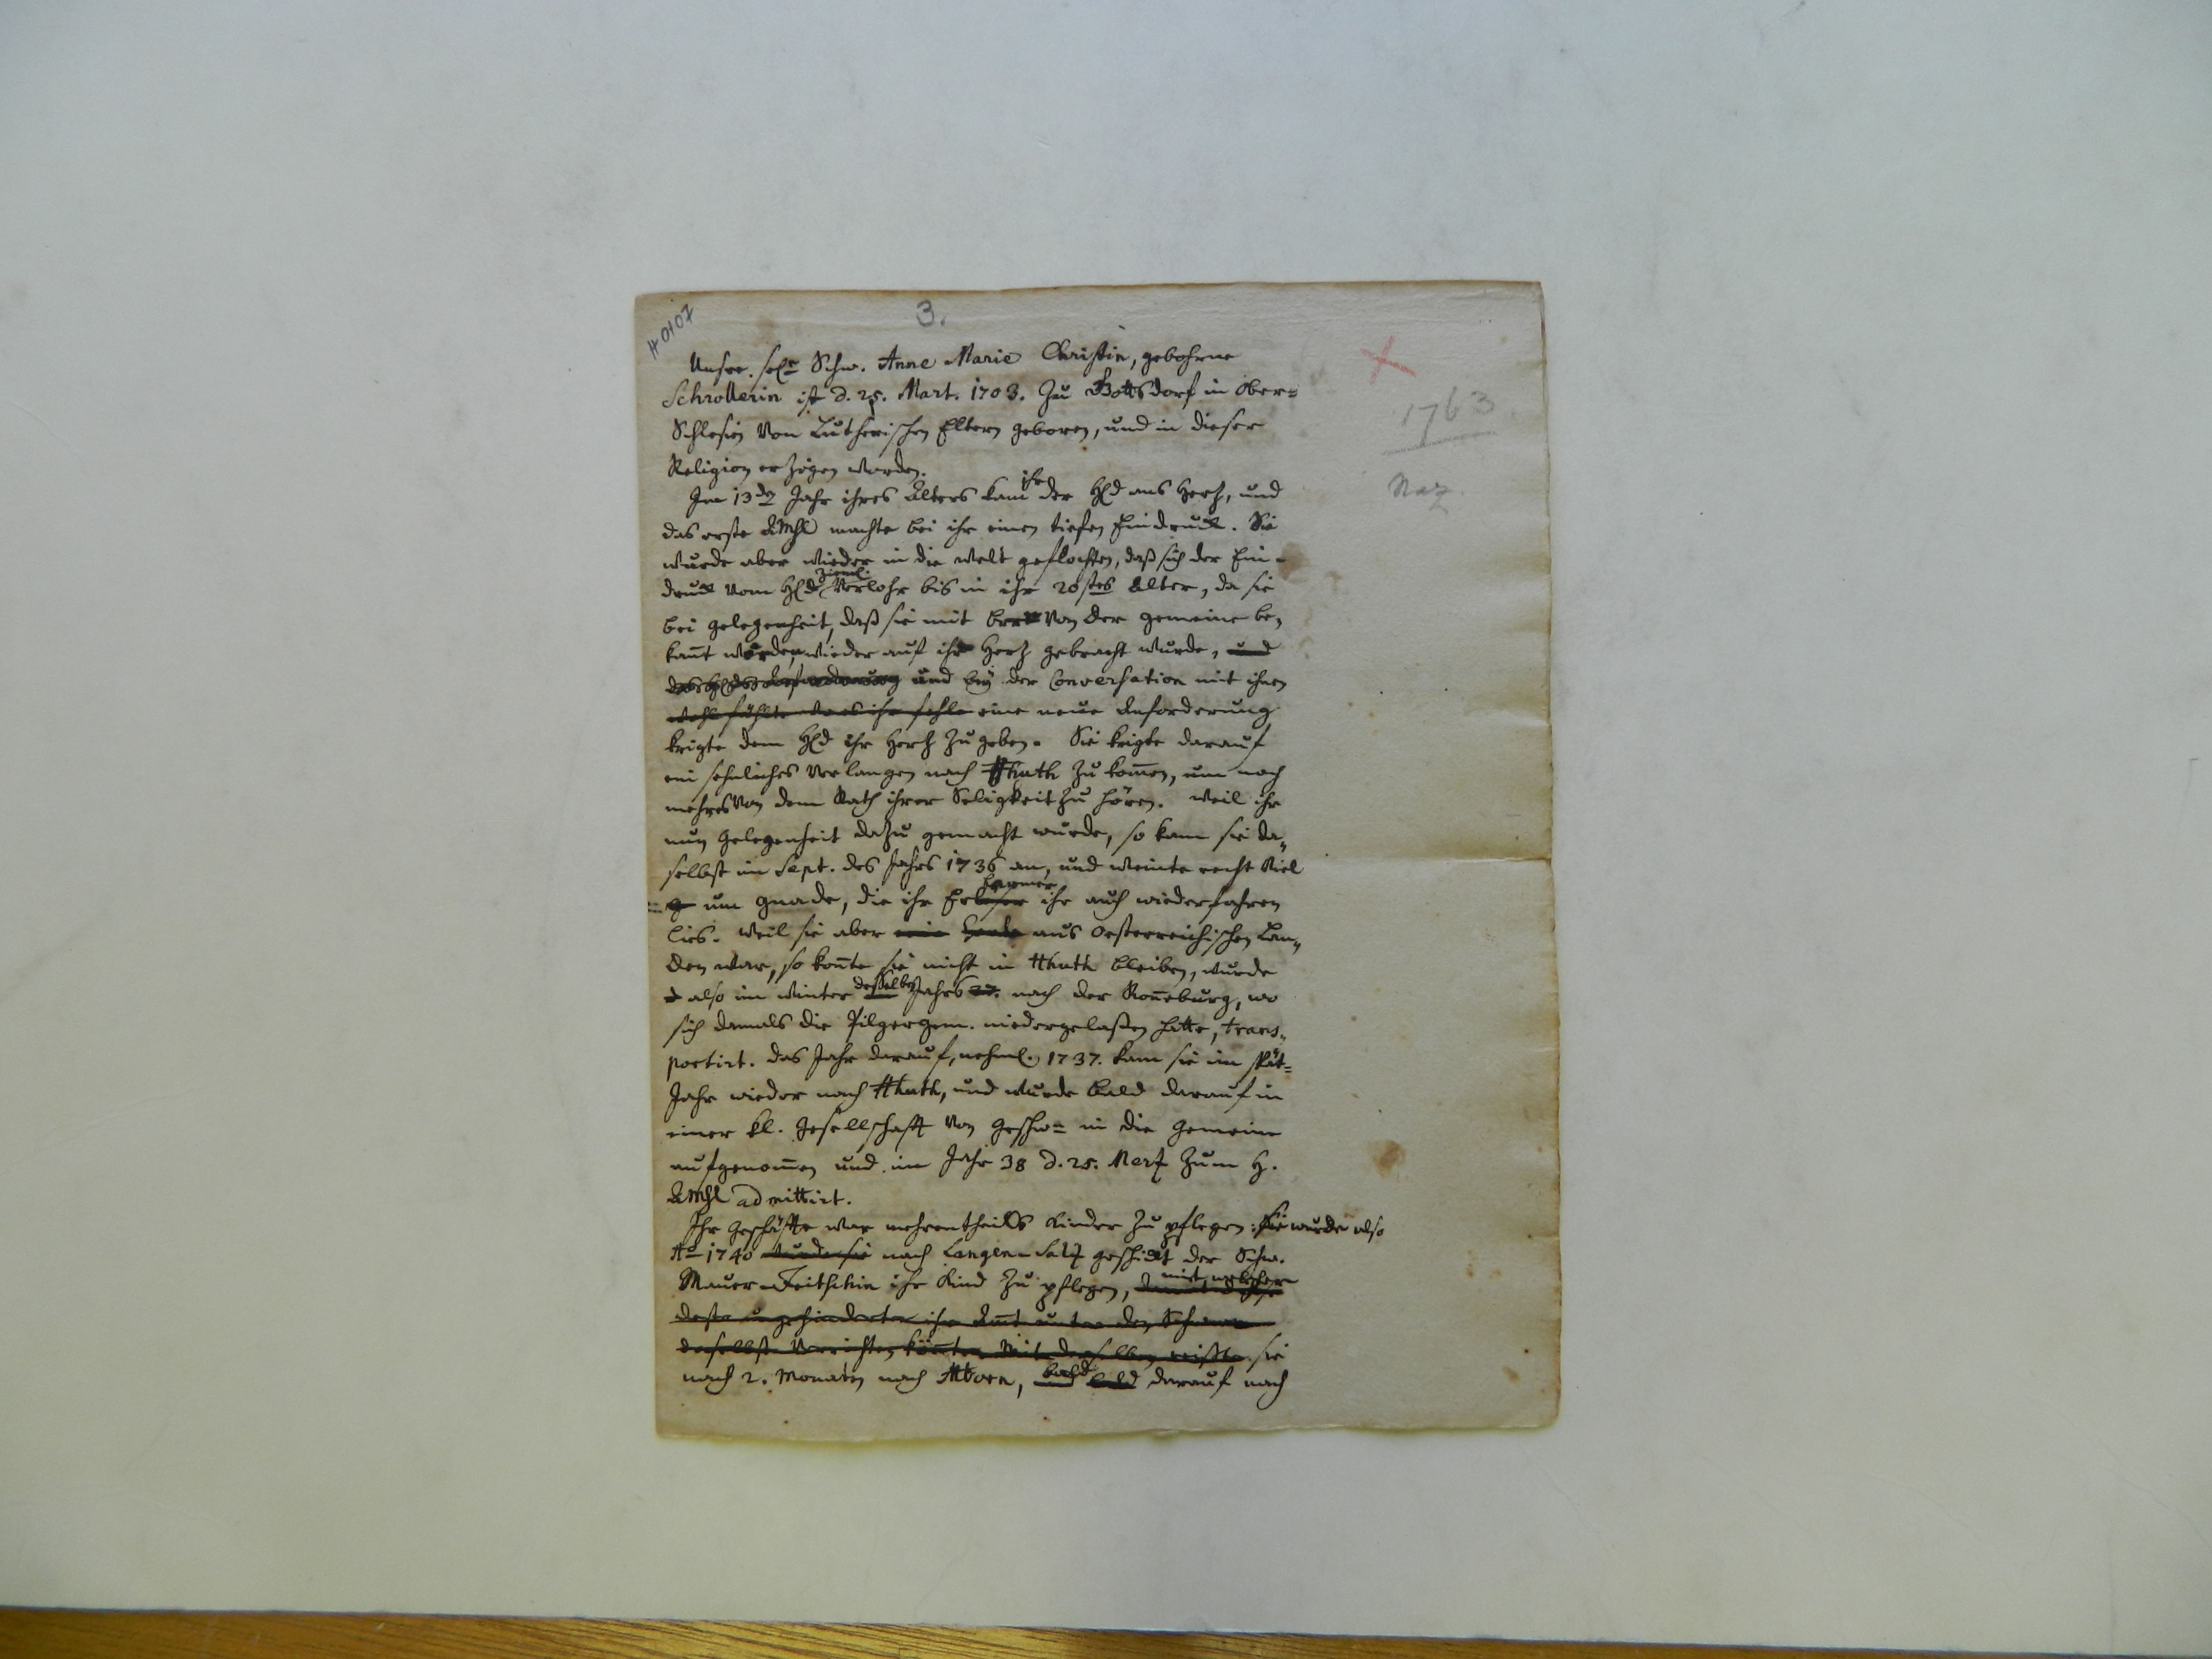 H 0107
3.
1763
Naz.
Unsre sel. Schw. Anne Marie Christin, gebohrne
Schrollerin ist d. 25. Mart. 1703. zu Bottsdorf in Ober=
Schlesien von Lutherischen Eltern geboren, und in dieser
Religion erzogen worden.
Im 13den Jahr ihres Alters kam ihr der Hld ans Hertz, und
das erste AMhl machte bei ihr einen tiefen Eindruck. Sie
wurde aber wieder in die Welt geflochten, daß sich der Ein-
druck vom Hld zieml. verlohr bis in ihr 20stes Alter, da sie
bei gelegenheit, daß sie mit brr von der gemeine be,,
kañt worden, wieder auf ihr Hertz gebracht wurde, und
und bey der Conversation mit ihnen
eine neue Anforderung
krigte dem Hld ihr Hertz zu geben. Sie krigte darauf
ein sehnliches Verlangen nach Hhuth zu kom̄en, um noch
mehres von dem Rath ihrer Seligkeit zu hören. Weil ihr
nun Gelegenheit dazu gemacht wurde, so kam sie da,,
selbst im Sept. des Jahrs 1736 an, und weinte recht viel
um gnade, die ihr Erbarmer ihr auch wiederfahren
lies. Weil sie aber aus Oesterreichischen Lan,,
den war, so koñte sie nicht in Hhuth bleiben, wurde
also im Winter desselben Jahrs nach der Roñeburg, wo
sich damals die Pilgergem. niedergelaßen hatte, trans,,
portirt. Das Jahr darauf, nehml. 1737. kam sie im spät=
Jahr wieder nach Hhuth, und wurde bald darauf in
einer kl. Gesellschafft von Geschw. in die Gemeine
aufgenom̄en und im Jahr 38 d. 25. Merz zum H.
AMhl admittirt.
Ihr Geschäffte war mehrentheils Kinder zu pflegen: Sie wurde also
Ao 1740 wurde sie nach Langen-Saltz geschickt der Schw.
Mauer-Feitschin ihr Kind zu pflegen, mit welcher
sie
nach 2. Monaten nach Mborn, bald darauf nach